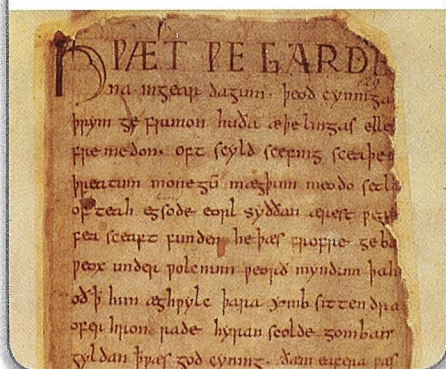 HǷÆT ǷE GARDE
na ingear dagum. þeod cyninga
þrym ge frunon huða æþelingas elle
fremedon. oft scyld scefing sceaþe
þreatum monegū mægþum meodo setl
of teah egsode eorl syððan ærest ƿear
fea sceaft funden he þæs frofre geba
ƿeox under ƿolcnum ƿeorð myndum þah
oð ꝥ him æghƿylc þara ymb sittendra
ofer hron rade hyran scolde gomban
gyldan ꝥ ƿæs god cyning. ðæm eafera ƿæs